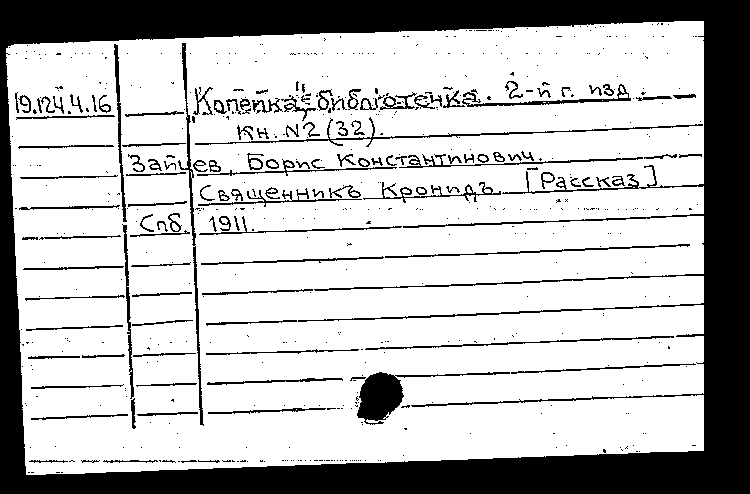 19.124.4.16 „Копейка"-библіотечка. 2-й г. изд.
Кн. N2 (32).
Зайцев, Борис Константинович.
Священникъ Кронидъ. [Рассказ]
Спб. 1911.